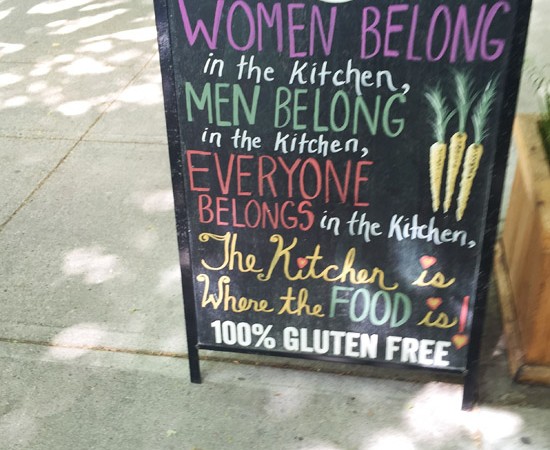 WOMEN BELONG
in the Kitchen,
MEN BELONG
in the Kitchen,
EVERYONE
BELONGS in the Kitchen,
The Kitchen is
Where the FOOD is!
100% GLUTEN FREE